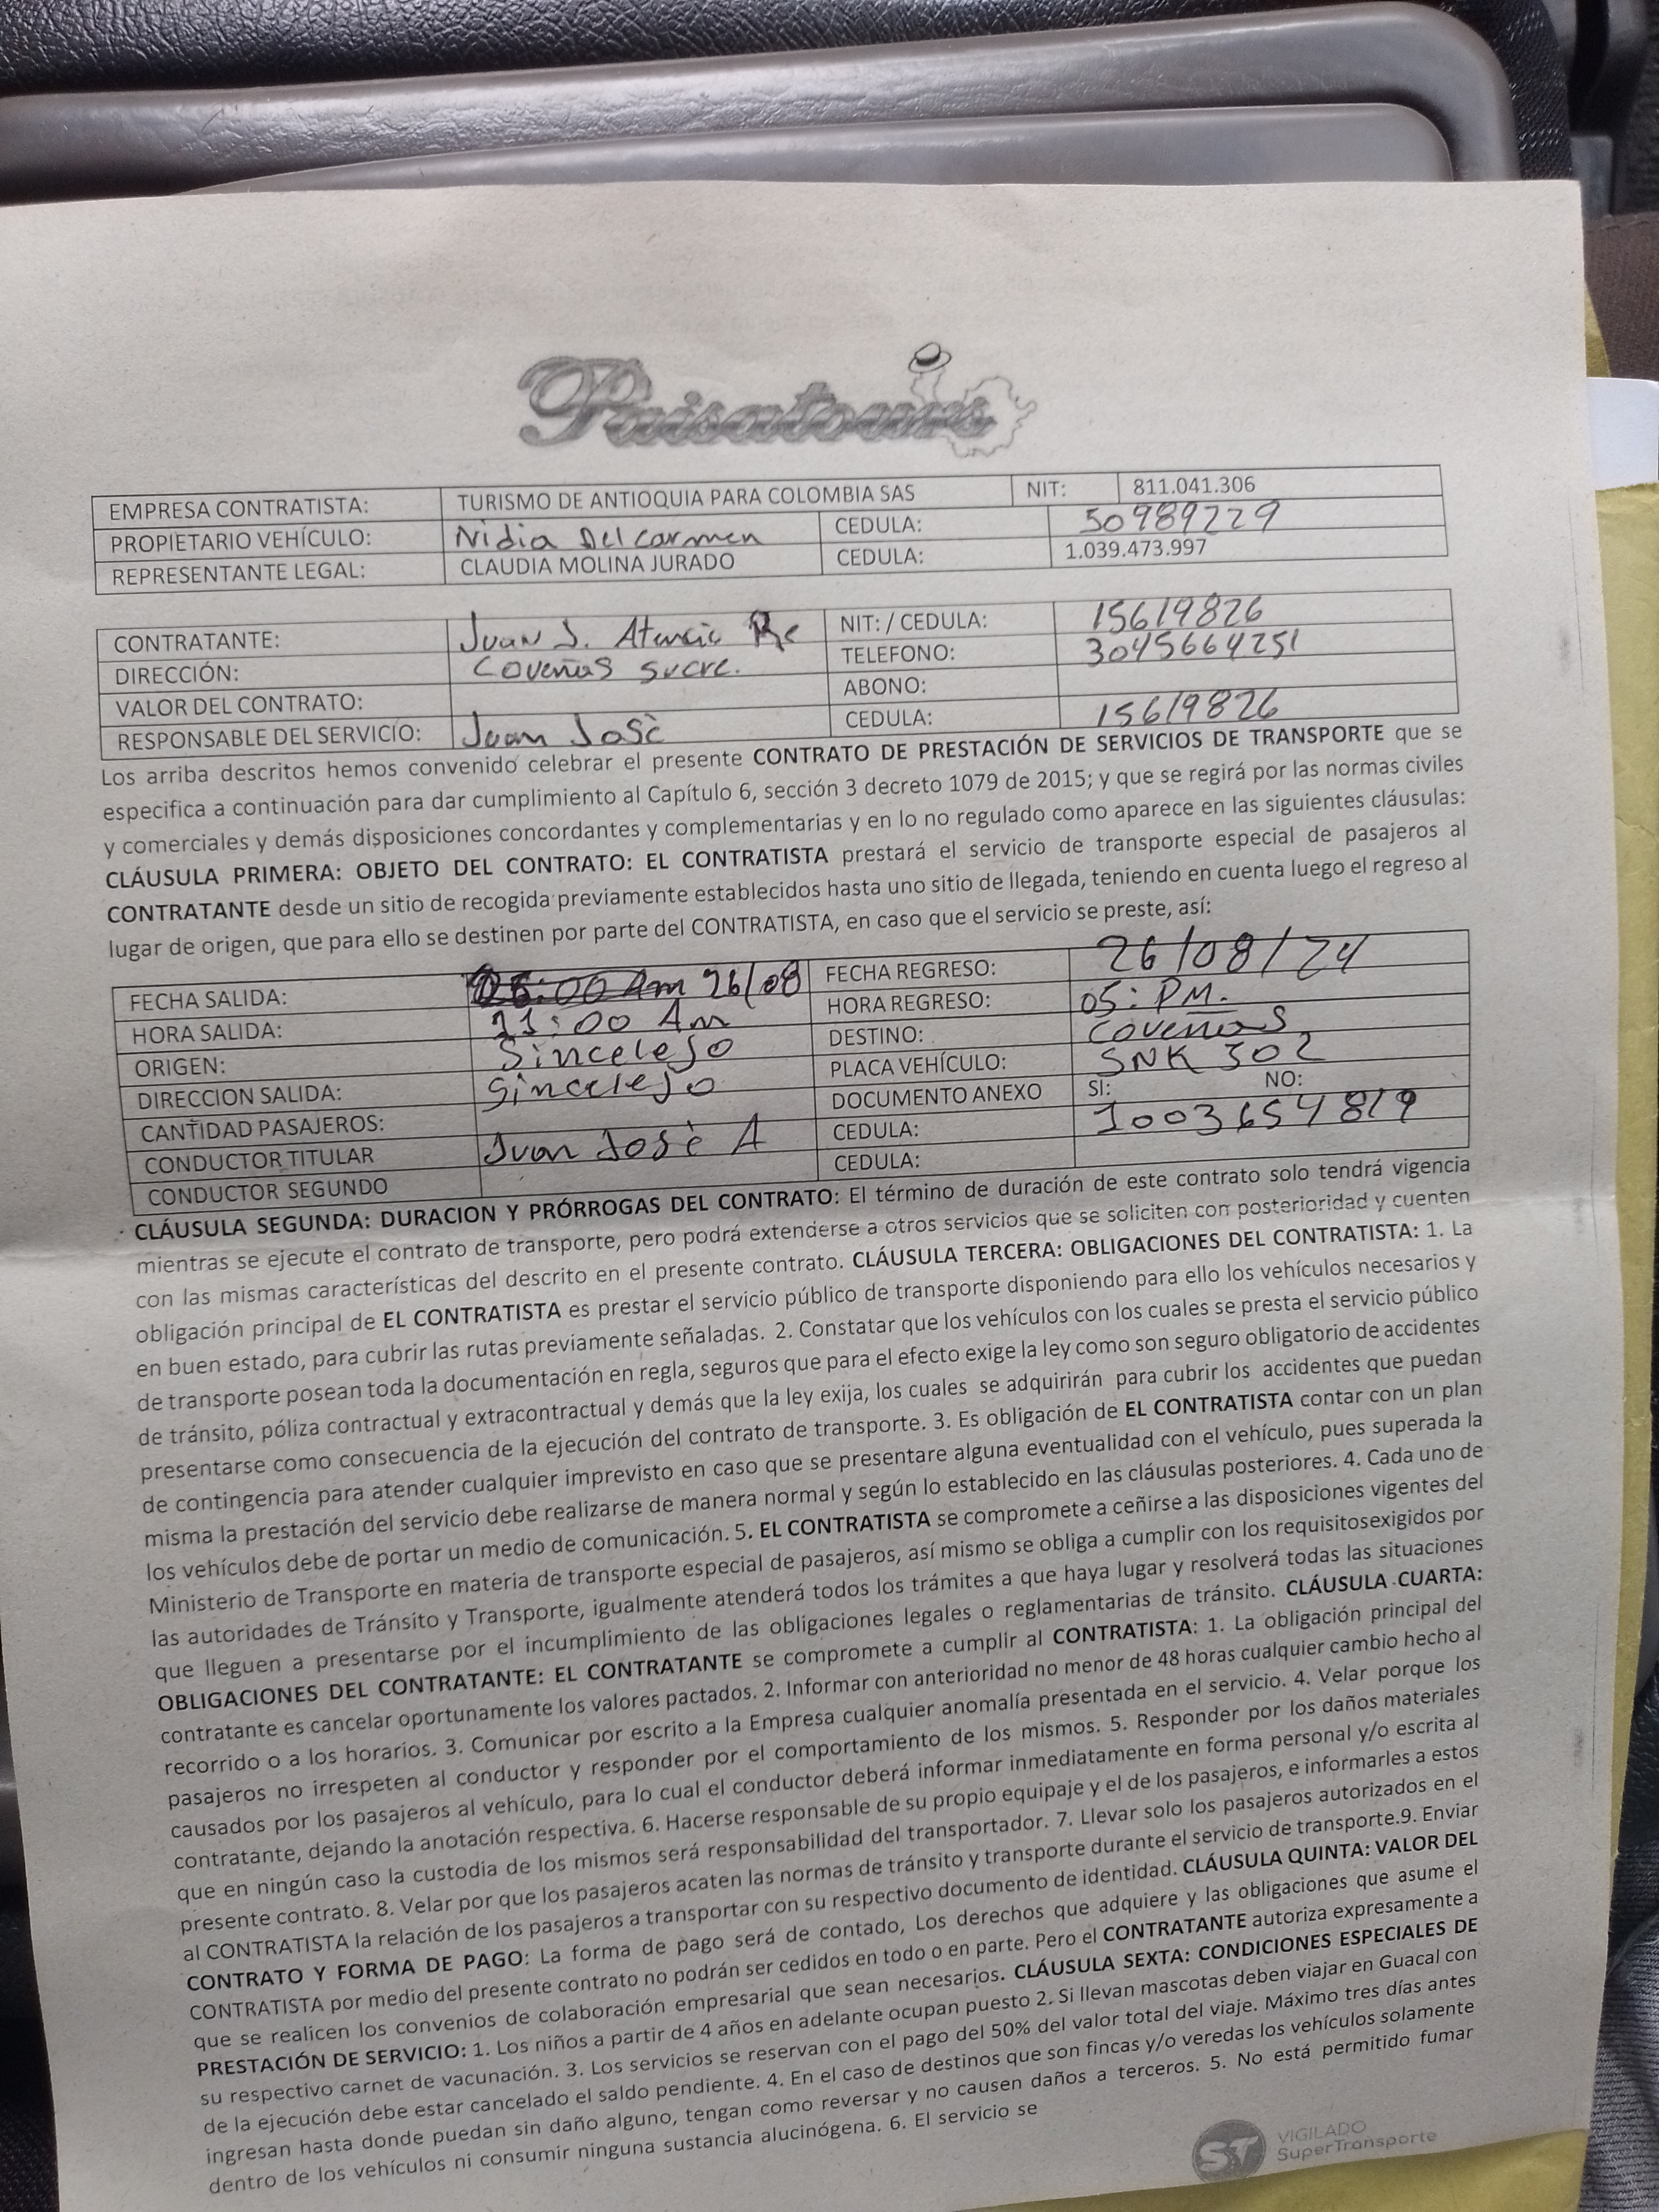 Paisatours
EMPRESA CONTRATISTA: TURISMO DE ANTIOQUIA PARA COLOMBIA SAS NIT: 811.041.306
PROPIETARIO VEHÍCULO: Nidia Del Carmen CEDULA: 50989229
REPRESENTANTE LEGAL: CLAUDIA MOLINA JURADO CEDULA: 1.039.473.997
CONTRATANTE: Juan J. Atencio NIT: / CEDULA: 15619826
DIRECCIÓN: Coveñas Sucre. TELEFONO: 3045664251
VALOR DEL CONTRATO: ABONO:
RESPONSABLE DEL SERVICIO: Juan Josè CEDULA: 15619826
Los arriba descritos hemos convenido celebrar el presente CONTRATO DE PRESTACIÓN DE SERVICIOS DE TRANSPORTE que se
especifica a continuación para dar cumplimiento al Capítulo 6, sección 3 decreto 1079 de 2015; y que se regirá por las normas civiles
y comerciales y demás disposiciones concordantes y complementarias y en lo no regulado como aparece en las siguientes cláusulas:
CLÁUSULA PRIMERA: OBJETO DEL CONTRATO: EL CONTRATISTA prestará el servicio de transporte especial de pasajeros al
CONTRATANTE desde un sitio de recogida previamente establecidos hasta uno sitio de llegada, teniendo en cuenta luego el regreso al
lugar de origen, que para ello se destinen por parte del CONTRATISTA, en caso que el servicio se preste, así:
FECHA SALIDA: 26/08 FECHA REGRESO: 26/08/24
HORA SALIDA: 11:00 Am HORA REGRESO: 05: PM.
ORIGEN: Sincelejo DESTINO: Coveñas
DIRECCION SALIDA: Sincelejo PLACA VEHÍCULO: SNK 302
CANTIDAD PASAJEROS: DOCUMENTO ANEXO SI: NO:
CONDUCTOR TITULAR Juan Josè A CEDULA: 1003654819
CONDUCTOR SEGUNDO CEDULA:
CLÁUSULA SEGUNDA: DURACION Y PRÓRROGAS DEL CONTRATO: El término de duración de este contrato solo tendrá vigencia
mientras se ejecute el contrato de transporte, pero podrá extenderse a otros servicios que se soliciten con posterioridad y cuenten
con las mismas características del descrito en el presente contrato. CLÁUSULA TERCERA: OBLIGACIONES DEL CONTRATISTA: 1. La
obligación principal de EL CONTRATISTA es prestar el servicio público de transporte disponiendo para ello los vehículos necesarios y
en buen estado, para cubrir las rutas previamente señaladas. 2. Constatar que los vehículos con los cuales se presta el servicio público
de transporte posean toda la documentación en regla, seguros que para el efecto exige la ley como son seguro obligatorio de accidentes
de tránsito, póliza contractual y extracontractual y demás que la ley exija, los cuales se adquirirán para cubrir los accidentes que puedan
presentarse como consecuencia de la ejecución del contrato de transporte. 3. Es obligación de EL CONTRATISTA contar con un plan
de contingencia para atender cualquier imprevisto en caso que se presentare alguna eventualidad con el vehículo, pues superada la
misma la prestación del servicio debe realizarse de manera normal y según lo establecido en las cláusulas posteriores. 4. Cada uno de
los vehículos debe de portar un medio de comunicación. 5. EL CONTRATISTA se compromete a ceñirse a las disposiciones vigentes del
Ministerio de Transporte en materia de transporte especial de pasajeros, así mismo se obliga a cumplir con los requisitosexigidos por
las autoridades de Tránsito y Transporte, igualmente atenderá todos los trámites a que haya lugar y resolverá todas las situaciones
que lleguen a presentarse por el incumplimiento de las obligaciones legales o reglamentarias de tránsito. CLÁUSULA CUARTA:
OBLIGACIONES DEL CONTRATANTE: EL CONTRATANTE se compromete a cumplir al CONTRATISTA: 1. La obligación principal del
contratante es cancelar oportunamente los valores pactados. 2. Informar con anterioridad no menor de 48 horas cualquier cambio hecho al
recorrido o a los horarios. 3. Comunicar por escrito a la Empresa cualquier anomalía presentada en el servicio. 4. Velar porque los
pasajeros no irrespeten al conductor y responder por el comportamiento de los mismos. 5. Responder por los daños materiales
causados por los pasajeros al vehículo, para lo cual el conductor deberá informar inmediatamente en forma personal y/o escrita al
contratante, dejando la anotación respectiva. 6. Hacerse responsable de su propio equipaje y el de los pasajeros, e informarles a estos
que en ningún caso la custodia de los mismos será responsabilidad del transportador. 7. Llevar solo los pasajeros autorizados en el
presente contrato. 8. Velar por que los pasajeros acaten las normas de tránsito y transporte durante el servicio de transporte.9. Enviar
al CONTRATISTA la relación de los pasajeros a transportar con su respectivo documento de identidad. CLÁUSULA QUINTA: VALOR DEL
CONTRATO Y FORMA DE PAGO: La forma de pago será de contado, Los derechos que adquiere y las obligaciones que asume el
CONTRATISTA por medio del presente contrato no podrán ser cedidos en todo o en parte. Pero el CONTRATANTE autoriza expresamente a
que se realicen los convenios de colaboración empresarial que sean necesarios. CLÁUSULA SEXTA: CONDICIONES ESPECIALES DE
PRESTACIÓN DE SERVICIO: 1. Los niños a partir de 4 años en adelante ocupan puesto 2. Si llevan mascotas deben viajar en Guacal con
su respectivo carnet de vacunación. 3. Los servicios se reservan con el pago del 50% del valor total del viaje. Máximo tres días antes
de la ejecución debe estar cancelado el saldo pendiente. 4. En el caso de destinos que son fincas y/o veredas los vehículos solamente
ingresan hasta donde puedan sin daño alguno, tengan como reversar y no causen daños a terceros. 5. No está permitido fumar
dentro de los vehículos ni consumir ninguna sustancia alucinógena. 6. El servicio se
ST VIGILADO
SuperTransporte